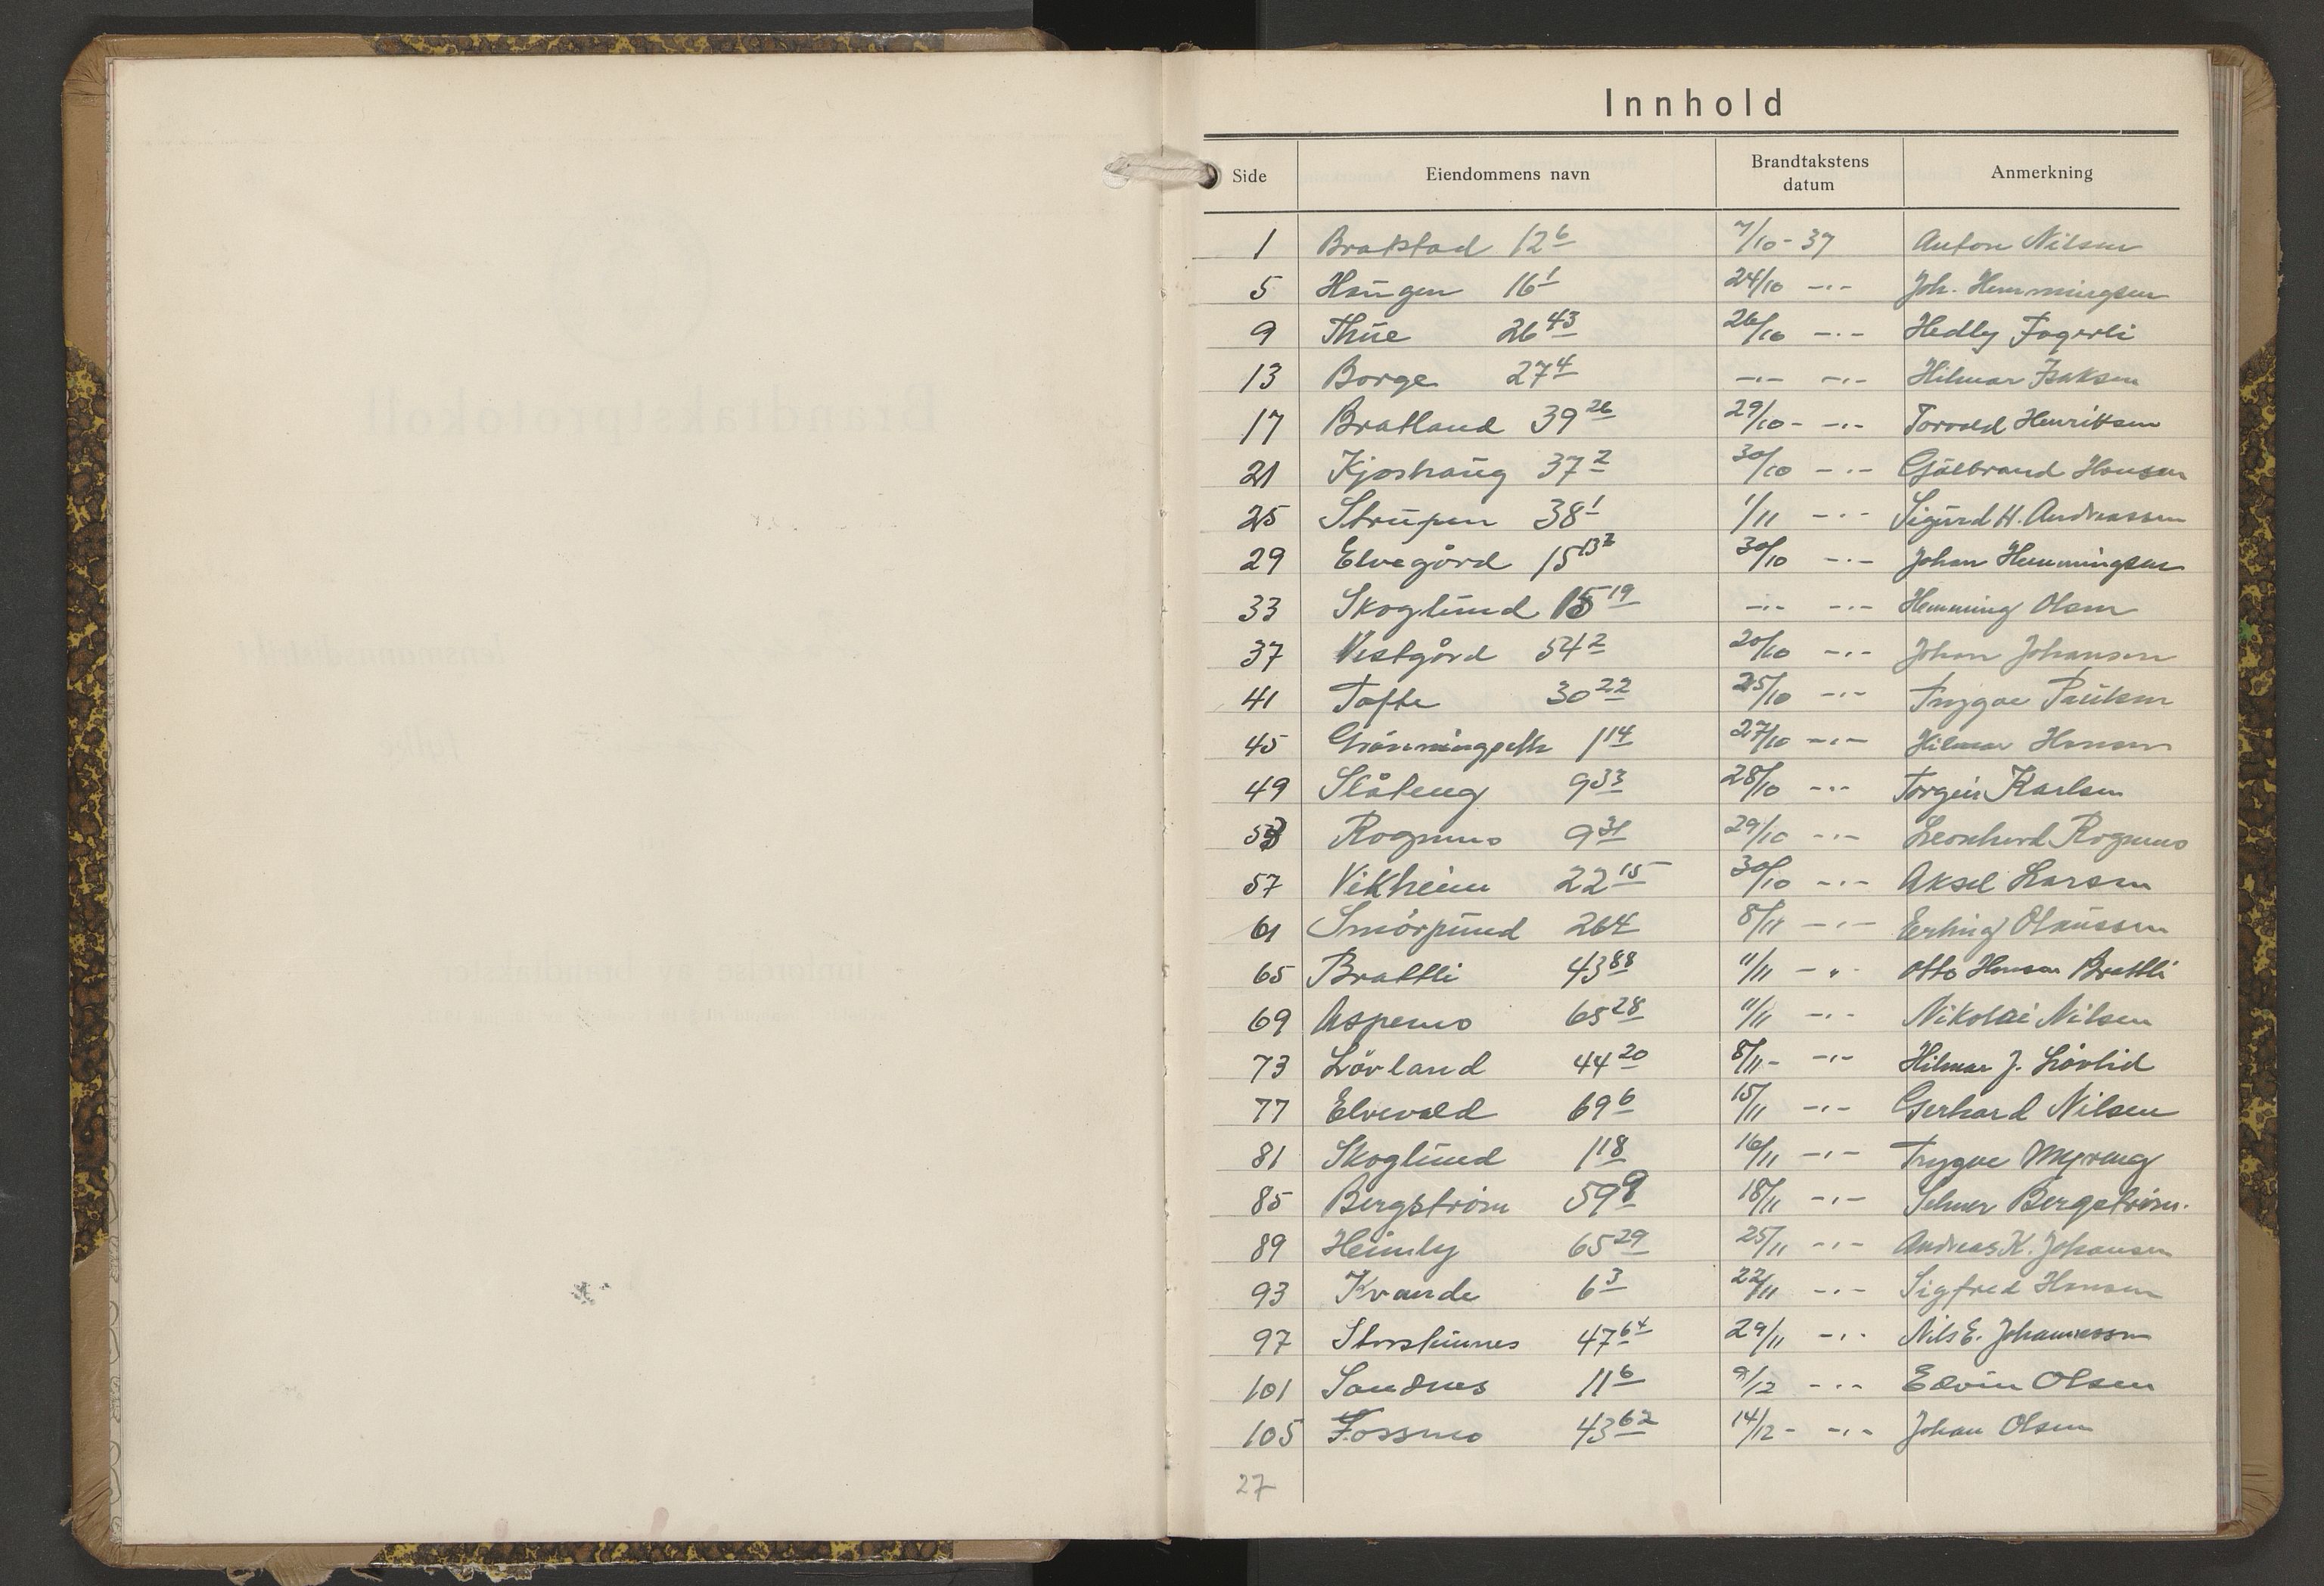 Innhold
Side Eiendommens navn Brandtakstens datum Anmerkning
1 Brakstad 12 6 7/10-37 Anton Nilsen
5 Haugen 16 1 24/10 -"- Joh. Hemmingsen
9 Thue 26 43 26/10 -"- Hedly Fagerli
13 Borge 27 4 -"- -"- Hilmar Isaksen
17 Bratland 39 26 29/10- -"- Torvald Henriksen
21 Kjoshaug 37 2 30/10 -"- Gulbrand Hansen
25 Strupen 38 1 1/11 -"- Sigurd H. Andreassen
29 Elvegård 15 132 30/10 -"- Johan Hemmingsen
33 Skoglund 15 19 -"- -"- Hemming Olsen
37 Vestgård 54 2 20/10 -"- Johan Johansen
41 Tofte 30 22 25/10 -"- Trygve Paulsen
45 1 14 27/10 -"- Hilmar Hansen
49 Slåteng 9 33 28/10 -"- Torgeir Karlsen
53 Rognmo 9 31 29/10 -"- Leonhard Rognmo
57 Vikheim 22 15 30/10 -"- Aksel Larsen
61 Smörpund 26 4 8/11 -"- Erling Olaussen
65 Brattli 43 88 11/11 -"- Otto Hansen Brattli
69 Aspemo 65 28 11/11 -"- Nikolai Nilsen
73 Lövland 44 20 8/11- -"- Hilmar J. Lövlid
77 Elvevold 69 6 15/11 -"- Gerhard Nilsen
81 Skoglund 1 18 16/11 -"- Trygve Myreng
85 Bergström 59 9 18/11 -"- Selmer Bergström.
89 Heimly 65 29 25/11 -"- Andreas K. Johansen
93 Kvande 6 3 22/11 -"- Sigfred Hansen
97 Storstinnes 47 64 29/11 -"- Nils E. Johannessen
101 Sandnes 11 6 9/12 -"- Edvin Olsen
105 Fossmo 43 62 14/12- -"- Johan Olsen
27